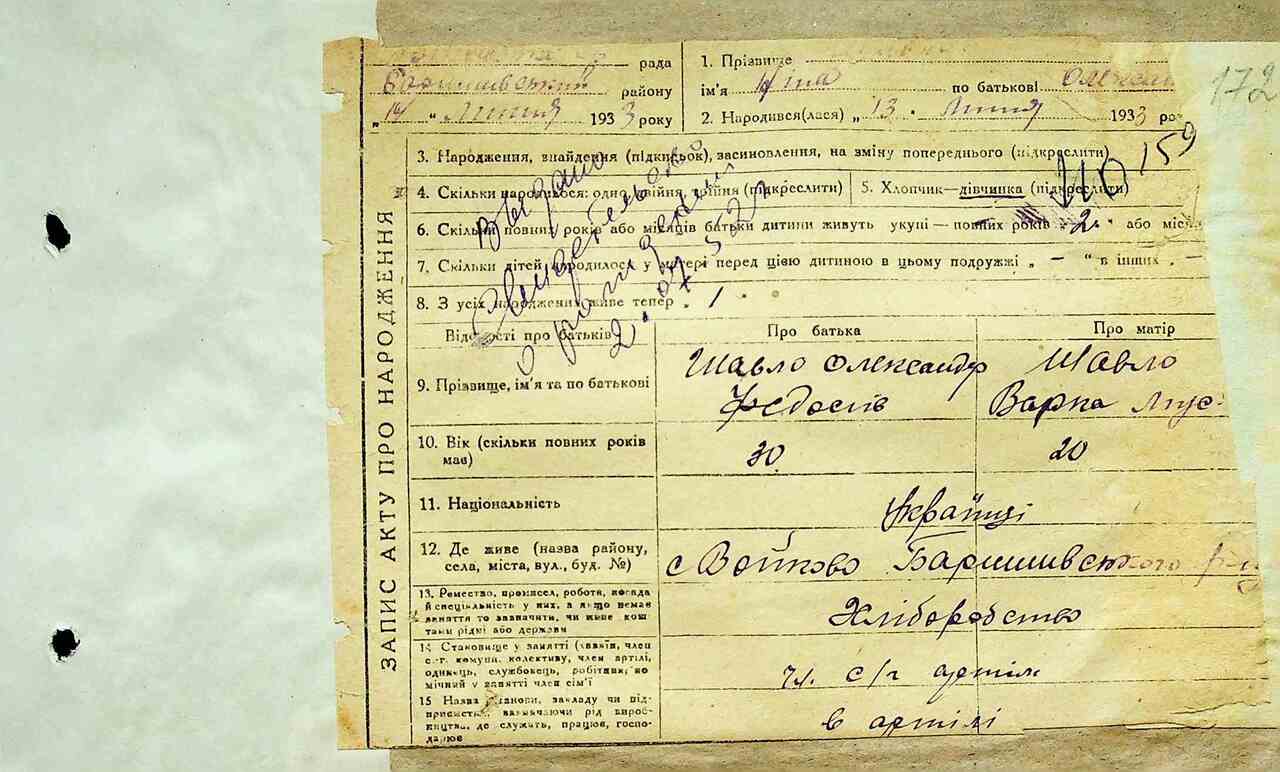 рада
Баришивський району
„14 “ Липня 1933 року
1. Прізвище
ім'я Ніна по батькові Олексан
2. Народився(лася) „ 13 . Липня 1933 ро
172
3. Народження, знайдення (підкидьок), засиновлення, на зміну попереднього (підкреслити)
№ 159
4. Скільки народилося: одно, двійня, трійня (підкреслити)
5. Хлопчик—дівчинка (підкреслити)
6. Скільки повних років або місяців батьки дитини живуть укупі — повних років 2 або міся
7. Скільки дітей народилося у матері перед цією дитиною в цьому подружжі „ — “ в інших . —
8. З усіх народжених живе тепер . 1
Выдано
Свидетельство
о рождении
2.04 52
Відомості про батьків
Про батька
Про матір
9. Прізвище, ім'я та по батькові
Шавло Олександр
Федосів
Шавло
Варка Мус-
10. Вік (скільки повних років має)
30
20
11. Національність
Українці
12. Де живе (назва району, села, міста, вул., буд. №)
с Войково Баришивського р-ну
13. Ремество, промисел, робота, посада й спеціальність у них, а якщо немає заняття то зазначити, чи живе коштами рідні або держави
Хліборобство
14 Становище у занятті (хазяїн, член с.-г. комуни, колективу, член артілі, одинець, службовець, робітник, помічний у занятті член сім'ї
чл. с/г артіл
15 Назва установи, закладу чи підприємства, зазначаючи рід виробництва, де служить, працює, господарює
в артілі
ЗАПИС АКТУ ПРО НАРОДЖЕННЯ